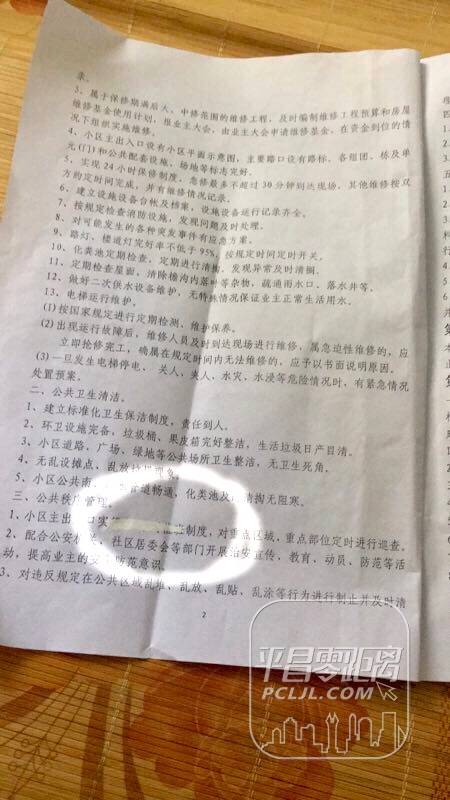 录。
3、属于保修期满后大、中修范围的维修工程，及时编制维修工程预算和房屋
维修基金使用计划，报业主大会，由业主大会申请维修基金，在资金到位的情
况下组织实施维修。
4、小区主出入口设有小区平面示意图，主要路口设有路标，各组团、栋及单
元(门)和公共配套设施、场地等标志完好。
5、实现24小时保修制度，急修最多不超过30分钟到达现场，其他维修按双
方约定时间完成，并有维修情况记录。
6、建立设施设备台帐及档案，设施设备运行记录齐全。
7、按规定检查消防设施，发现问题及时处理。
8、对可能发生的各种突发事件有应急方案。
9、路灯、楼道灯完好率不低于95%，按规定时间定时开关。
10、化粪池定期检查，定期进行清掏，发现异常及时清掏。
11、定期检查屋面，清除檐沟内落叶等杂物，疏通雨水口、落水井等。
12、做好二次供水设备维护，无特殊情况保证业主正常生活用水。
13、电梯运行维护。
(1)按国家规定进行定期检测、维护保养。
(2)出现运行故障后，维修人员及时到达现场进行维修，属急迫性维修的，应
立即抢修完工，确属在规定时间内无法维修的，应予以书面说明原因。
(3)一旦发生电梯停电、关人、夹人、水灾、水浸等危险情况时，有紧急情况
处置预案。
二、公共卫生清洁。
1、建立标准化卫生保洁制度，责任到人。
2、环卫设施完备，垃圾桶、果皮箱完好整洁，生活垃圾日产日清。
3、小区道路、广场、绿地等公共场所卫生整洁，无卫生死角。
4、无乱设摊点、乱放垃圾现象。
5、小区公共雨、管道畅通，化类池及清掏无阻寒。
三、公共秩序管理。
1、小区主出口实制度，对重点区域，重点部位定时进行巡查。
2、配合公安机关、社区居委会等部门开展治安宣传、教育、动员、防范等活
动，提高业主的安全防范意识。
3、对违反规定在公共区域乱堆、乱放、乱贴、乱涂等行为进行制止并及时清
2
平昌零距离
PCLJL.COM